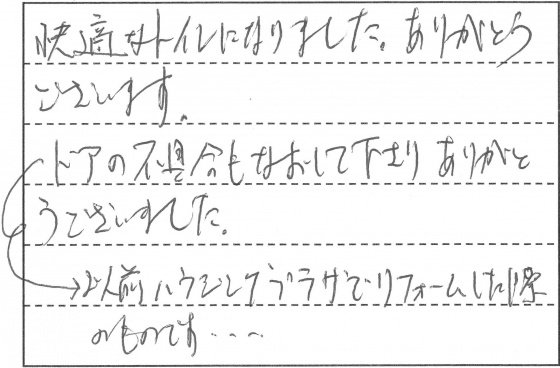 快適なトイレになりました。ありがとう
ございます。
ドアの不具合もなおして下さり ありがと
うございました。
→以前ハウジングプラザでリフォームした際
のものです・・・